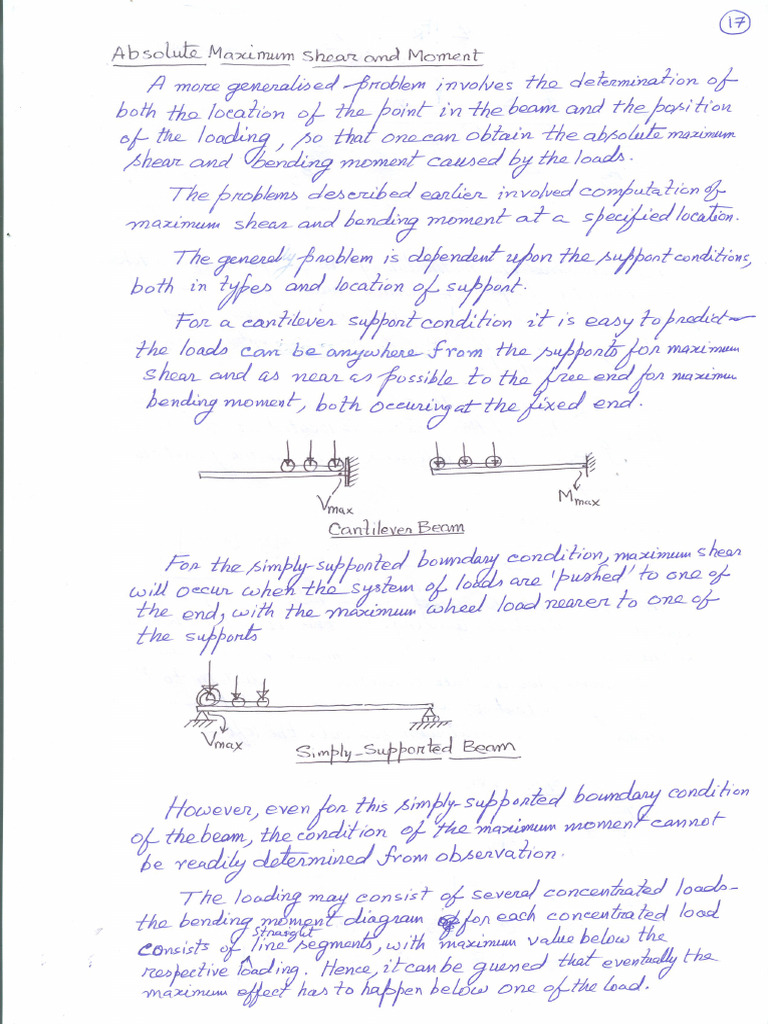 17
Absolute Maximum Shear and Moment
A more generalised problem involves the determination of
both the location of the point in the beam and the position
of the loading, so that one can obtain the absolute maximum
shear and bending moment caused by the loads.
The problems described earlier involved computation of
maximum shear and bending moment at a specified location.
The general problem is dependent upon the support conditions,
both in types and location of support.
For a cantilever support condition it is easy to predict
the loads can be anywhere from the supports for maximum
shear and as near as possible to the free end for maximum
bending moment, both occuring at the fixed end.
Vmax
Mmax
Cantilever Beam
For the simply-supported boundary condition, maximum shear
will occur when the system of loads are 'pushed' to one of
the end, with the maximum wheel load nearer to one of
the supports
Vmax
Simply-Supported Beam
However, even for this simply-supported boundary condition
of the beam, the condition of the maximum moment cannot
be readily determined from observation.
The loading may consist of several concentrated loads-
the bending moment diagram for each concentrated load
consists of straight line segments, with maximum value below the
respective loading. Hence, it can be guened that eventually the
maximum effect has to happen below one of the load.